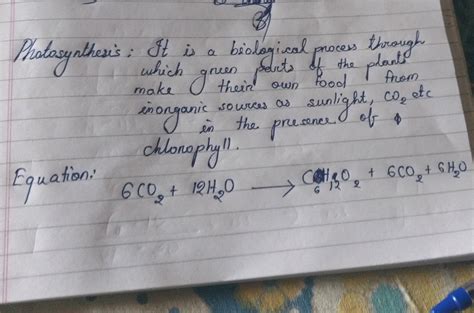 Photosynthesis : It is a biological process through
which green parts of the plants
make their own food from
inorganic sources as sunlight, CO2 etc
in the presence of
chlorophyll.
Equation: 6CO2 + 12H2O → C6H12O2 + 6CO2 + 6H2O